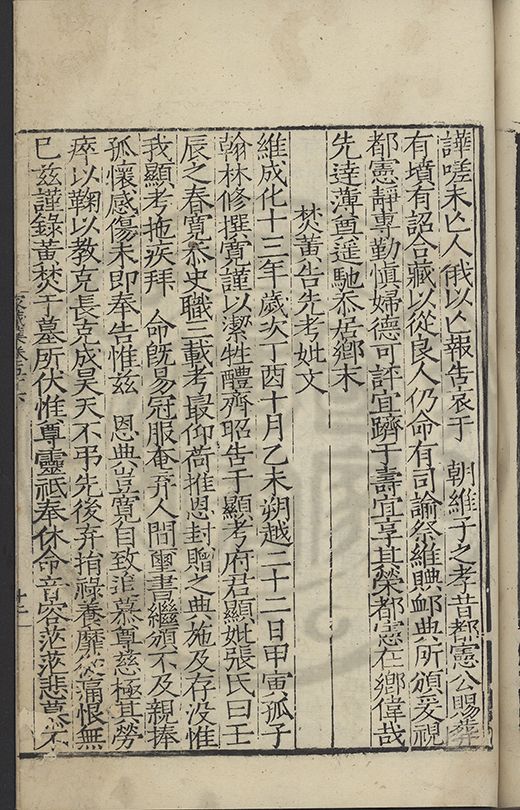 譁嗟未亡人俄以亡報告哀于　朝維子之孝昔都憲公賜葬
有墳有詔合藏以從良人仍命有司諭祭維賻邮典所頒爰視
都憲靜專勤慎婦德可評宜躋于壽宜享其榮都憲在鄉偉哉
先逹薄奠遥馳忝居鄉末
焚黄告先考妣文
維成化十三年歲次丁酉十月乙未朔越二十二日甲寅孤子
翰林修撰寛謹以潔牲醴齊昭告于顯考府君顯妣張氏曰壬
辰之春寛忝史職三載考最仰荷推恩封贈之典施及存没惟
我顯考拖疾拜　命旣易冠服奄弃人間璽書繼頒不及親捧
孤懷感傷未即奉告惟兹　恩典豈寛自致追慕尊慈極其勞
瘁以鞠以教克長克成昊天不弔先後弃捐祿養靡從痛恨無
已兹謹錄黄焚于墓所伏惟尊靈祇奉休命音容茫茫悲慕不
家藏集卷五十六